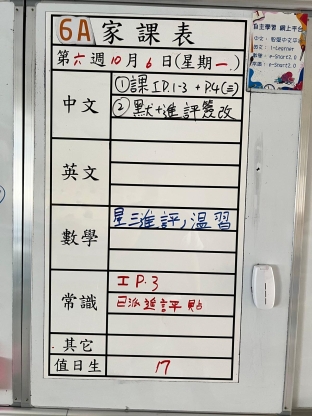 6A 家課表
第六週10月6日(星期一)
中文
①課ID.1-3 + P.4(三)
②默+進評簽改
英文
數學
星三進評,溫習
常識
工 P.3
已派進評貼
其它
值日生
17
自主學習 網上平台
i-Learner
e-Smart2.0
e-Smart2.0